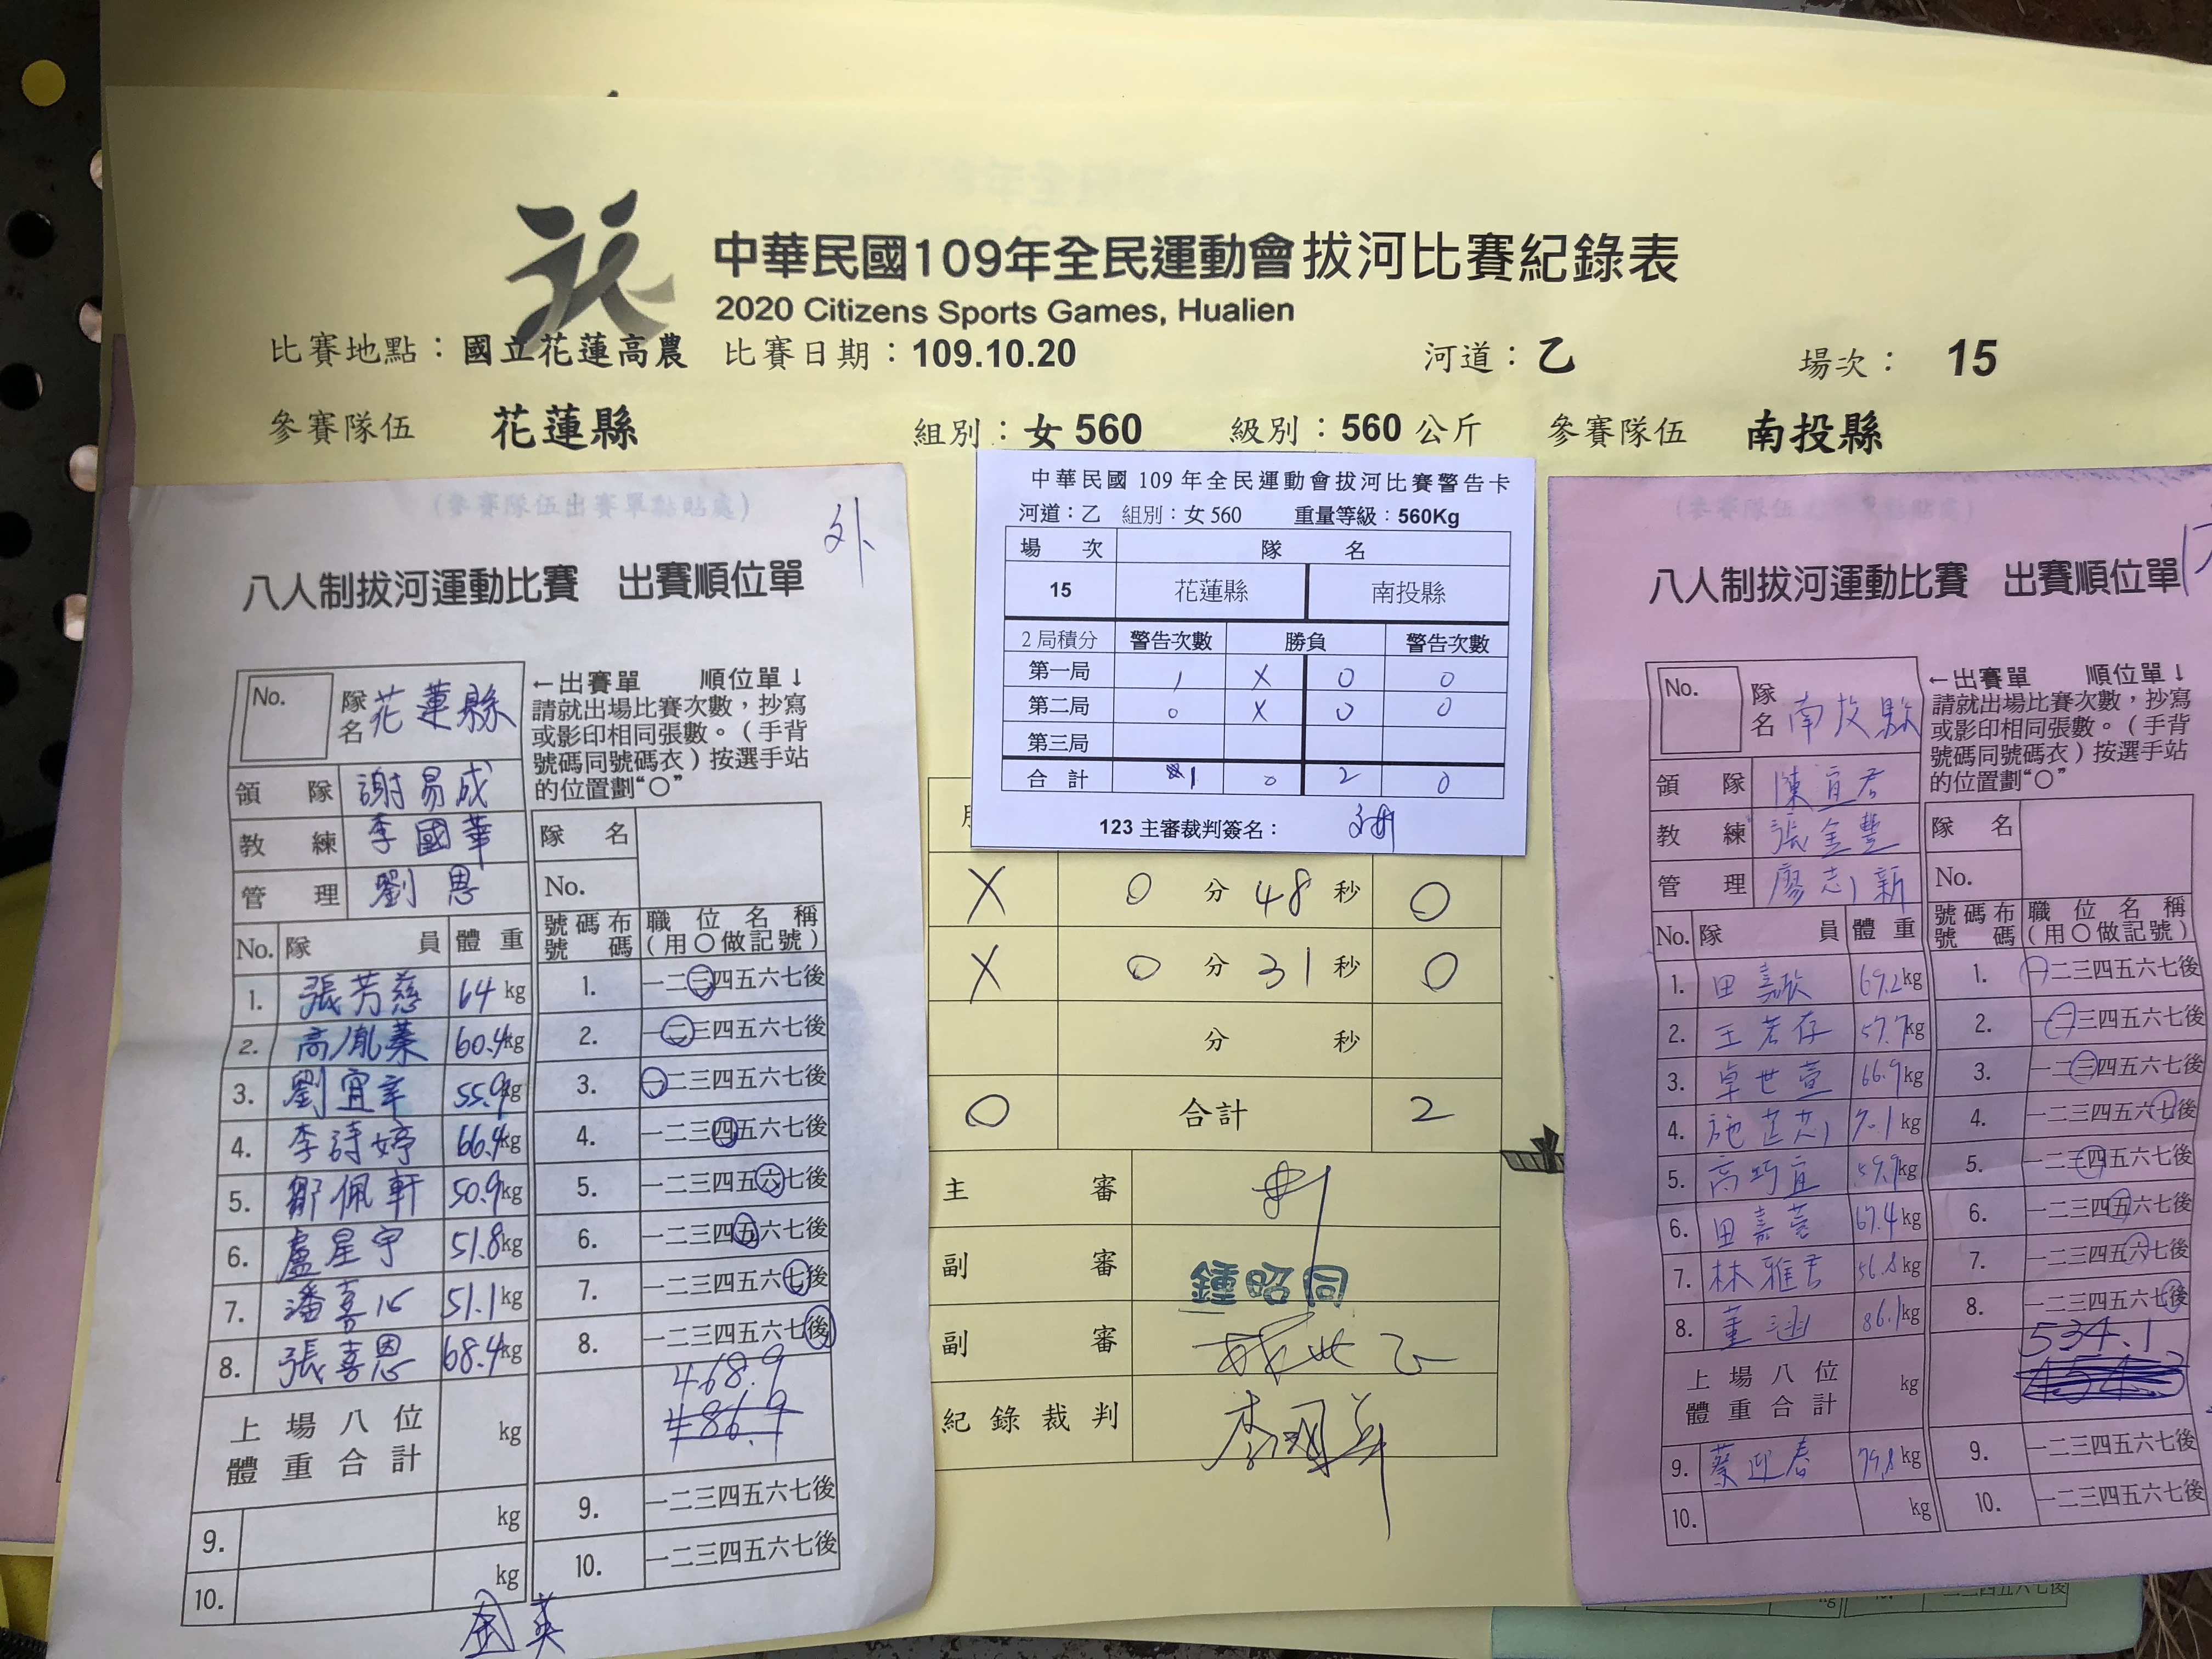 中華民國109年全民運動會拔河比賽紀錄表
2020 Citizens Sports Games, Hualien
比賽地點：國立花蓮高農 比賽日期：109.10.20 河道：乙 場次： 15
參賽隊伍 花蓮縣 組別：女 560 級別：560 公斤 參賽隊伍 南投縣
(參賽隊伍出賽單黏貼處)
外
八人制拔河運動比賽 出賽順位單
No. 隊名 花蓮縣
←出賽單 順位單↓
請就出場比賽次數，抄寫
或影印相同張數。（手背
號碼同號碼衣）按選手站
的位置劃“○”
領隊 謝易成
教練 李國華
管理 劉恩
隊名
No.
No. 隊員 體重 號碼布號碼 職位名稱（用○做記號）
1. 張芳慈 64 kg 1. 一二三四五六七後
2. 高胤蓁 60.4kg 2. 一二三四五六七後
3. 劉宜 55.9kg 3. 一二三四五六七後
4. 李詩婷 66.4kg 4. 一二三四五六七後
5. 鄒佩軒 50.9kg 5. 一二三四五六七後
6. 盧星宇 51.8kg 6. 一二三四五六七後
7. 潘喜 51.1kg 7. 一二三四五六七後
8. 張喜恩 68.4kg 8. 一二三四五六七後
上場八位 體重合計 kg 468.9
486.9
9. kg 9. 一二三四五六七後
10. kg 10. 一二三四五六七後
英
中華民國 109 年全民運動會拔河比賽警告卡
河道：乙 組別：女 560 重量等級：560Kg
場次 隊名
15 花蓮縣 南投縣
2 局積分 警告次數 勝負 警告次數
第一局 1 X 0 0
第二局 0 X 0 0
第三局
合計 1 0 2 0
123 主審裁判簽名：
X 0 分 48 秒 0
X 0 分 31 秒 0
分 秒
0 合計 2
主審
副審 鍾昭同
副審
紀錄裁判
(參賽隊伍出賽單黏貼處)
八人制拔河運動比賽 出賽順位單
No. 隊名 南投縣
←出賽單 順位單↓
請就出場比賽次數，抄寫
或影印相同張數。（手背
號碼同號碼衣）按選手站
的位置劃“○”
領隊 陳宜君
教練 張金豐
管理 廖志新
隊名
No.
No. 隊員 體重 號碼布號碼 職位名稱（用○做記號）
1. 田嘉欣 69.2kg 1. 一二三四五六七後
2. 王若存 57.7kg 2. 一二三四五六七後
3. 卓世萱 66.9kg 3. 一二三四五六七後
4. 施 kg 4. 一二三四五六七後
5. 高巧宜 59.9kg 5. 一二三四五六七後
6. 田嘉萱 67.4kg 6. 一二三四五六七後
7. 林雅君 56.8kg 7. 一二三四五六七後
8. 董涵 86.1kg 8. 一二三四五六七後
上場八位 體重合計 kg 534.1
9. 蔡迎春 79.8kg 9. 一二三四五六七後
10. kg 10. 一二三四五六七後